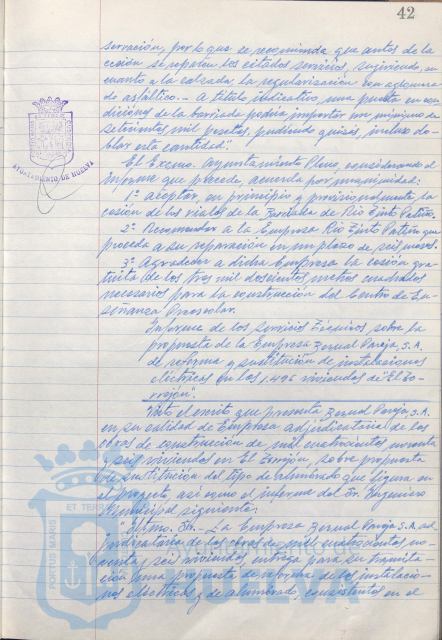 42
servación, por lo que se recomienda que antes de la
cesión se reparen los citados servicios, sugiriendo, en
cuanto a la calzada, la regularización con aglomera-
do asfáltico.- A título indicativo, una puesta en con-
diciones de la barriada podría importar un mínimo de
setecientas mil pesetas, pudiendo quizás, incluso do-
blar esta cantidad".
El Excmo. Ayuntamiento Pleno, considerando el
informe que precede, acuerda por unanimidad:
1º Aceptar, en principio y provisionalmente, la
cesión de los viales de la Barriada de Río Tinto Patiño.
2º Recomendar a la Empresa Río Tinto Patiño que
proceda a su reparación en un plazo de seis meses.
3º Agradecer a dicha Empresa la cesión gra-
tuita de los tres mil doscientos metros cuadrados
necesarios para la construcción del Centro de En-
señanza Preescolar.
Informe de los Servicios Técnicos sobre la
propuesta de la Empresa Bernal Pareja, S.A.
de reforma y sustitución de instalaciones
eléctricas en las 1.496 viviendas de "El To-
rrejón".
Visto el escrito que presenta Bernal Pareja, S.A.
en su calidad de Empresa adjudicataria de las
obras de construcción de mil cuatrocientas noventa
y seis viviendas en El Torrejón, sobre propuesta
de sustitución del tipo de alumbrado que figura en
el proyecto, así como el informe del Sr. Ingeniero
Municipal siguiente:
"Iltmo. Sr.- La Empresa Bernal Pareja S.A. ad-
judicataria de las obras de mil cuatrocientas no-
venta y seis viviendas, entrega para su tramita-
ción una propuesta de reforma de las instalacio-
nes eléctricas y de alumbrado, consistentes en el
AYUNTAMIENTO DE HUELVA
PORTUS MARIS ET TERRÆ
Ayuntamiento de
HUELVA